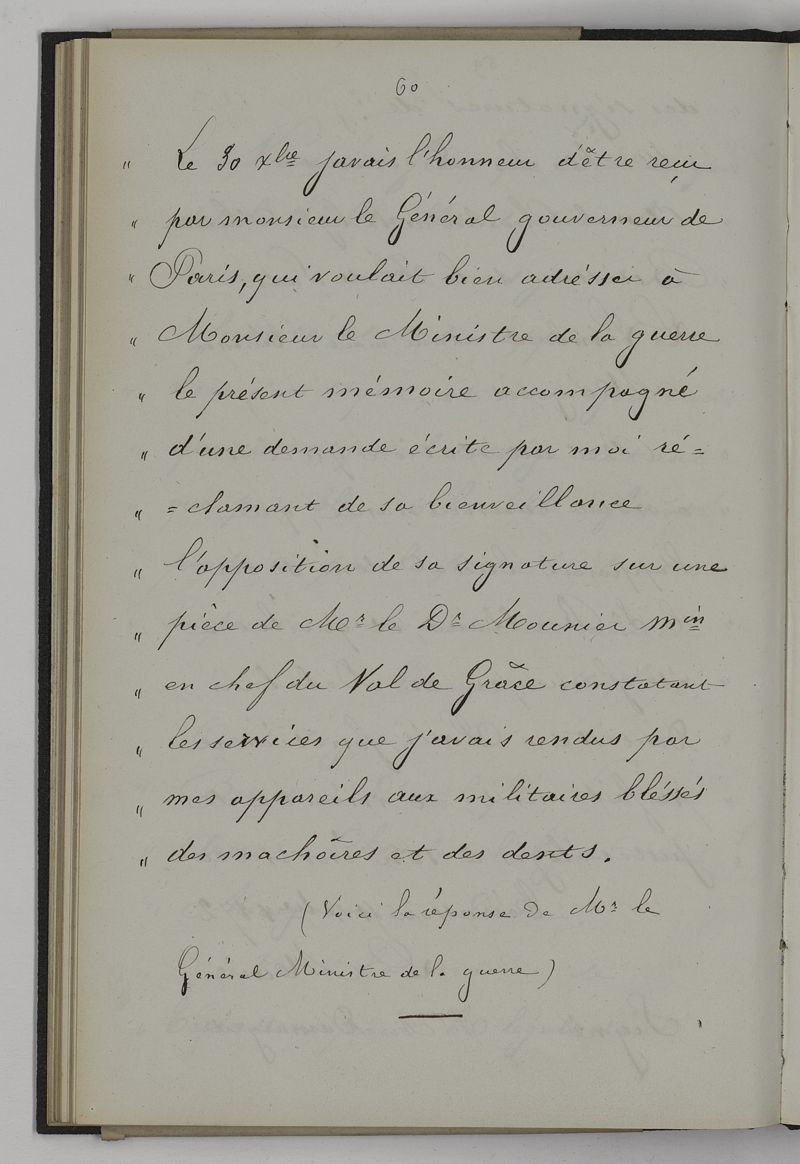 60
" Le 30 xbre javais l'honneur d'être reçu
" par monsieur le Général gouverneur de
" Paris, qui voulait bien adrésser à
" Monsieur le Ministre de la guerre
" le présent mémoire accompagné
" d'une demande écrite par moi ré=
" =clamant de sa bienveillance
" l'opposition de sa signature sur une
" pièce de Mr le Dr Mounier Min
" en chef du Val de Grâce constatant
" les services que j'avais rendus par
" mes appareils aux militaires bléssés
" des machôires et des dents.
(Voici la réponse de Mr le
Général Ministre de la guerre)